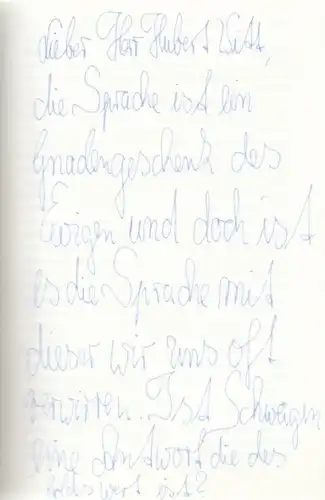 Lieber Herr Hubert Witt,
die Sprache ist ein
Gnadengeschenk des
Ewigen und doch ist
es die Sprache mit
dieser wir uns oft
verwirren. Ist Schweigen
eine Antwort die des
wert ist?